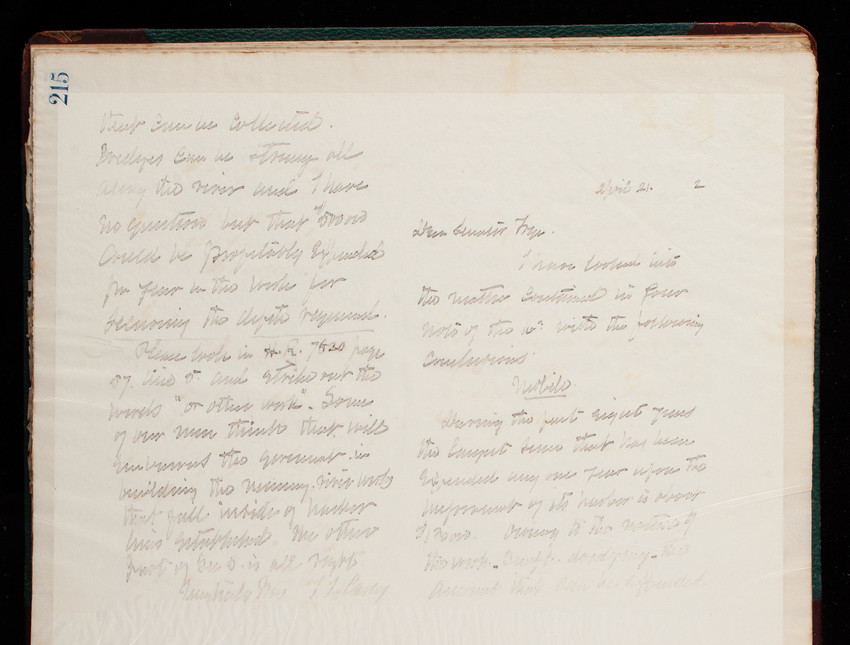 215
that can be collected.
Bridges can be strung all
along the river and I have
no question but that $500000
could be profitably expended
per year in the work for
securing the depth required.
Please look in H.R. 7820 page
57. line 5. and strike out the
words "or other work". Some
of our men think that will
embarrass the government in
building the necessary river works
that fall inside of harbor
lines established. The other
part of Sec 5. is all right
Truly Yrs T L Casey
April 21. 2
Dear Senator Frye.
I have looked into
the matter contained in your
note of the with the following
conclusions:
Mobile.
During the past eight years
the largest sum that has been
expended any one year upon the
improvement of its harbor is about
Owing to the nature of
the work dredging the
amount that can be expended